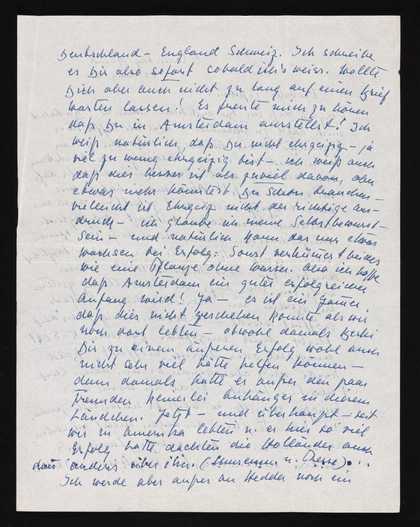 Deutschland – England Schweiz. Ich schreibe
es Dir also sofort sobald ich's weiss. Wollte
Dich aber auch nicht zu lang auf einen Brief
warten lassen! Es freute mich zu hören
daß Du in Amsterdam ausstellst! Ich
weiß natürlich, daß Du nicht ehrgeizig – ja
viel zu wenig ehrgeizig bist – ich weiß auch
daß dies besser ist als zuviel davon, aber
etwas mehr könntest Du schon brauchen –
vielleicht ist Ehrgeiz nicht der richtige Aus-
druck – ich glaube ich meine Selbstbewusst-
sein – und natürlich kann das nur etwas
wachsen bei Erfolg: Sonst verkümert beides
wie eine Pflanze ohne Wasser. Also ich hoffe
daß Amsterdam ein guter erfolgreicher
Anfang wird! Ja – es ist ein Jamer
daß dies nicht geschehen konnte als wir
noch dort lebten – obwohl damals
Dir zu einem äuseren Erfolg wohl auch
nicht sehr viel hätte helfen können –
denn damals hatte er auser den paar
Freunden keinerlei Anhänger in diesem
Ländchen. Jetzt – und überhaupt – seit
wir in Amerika lebten u. er hier so viel
Erfolg hatte dachten die Holländer auch
dan anders über ihn. (Museumm u. Presse)...
Ich werde aber auser an Hedda noch ein